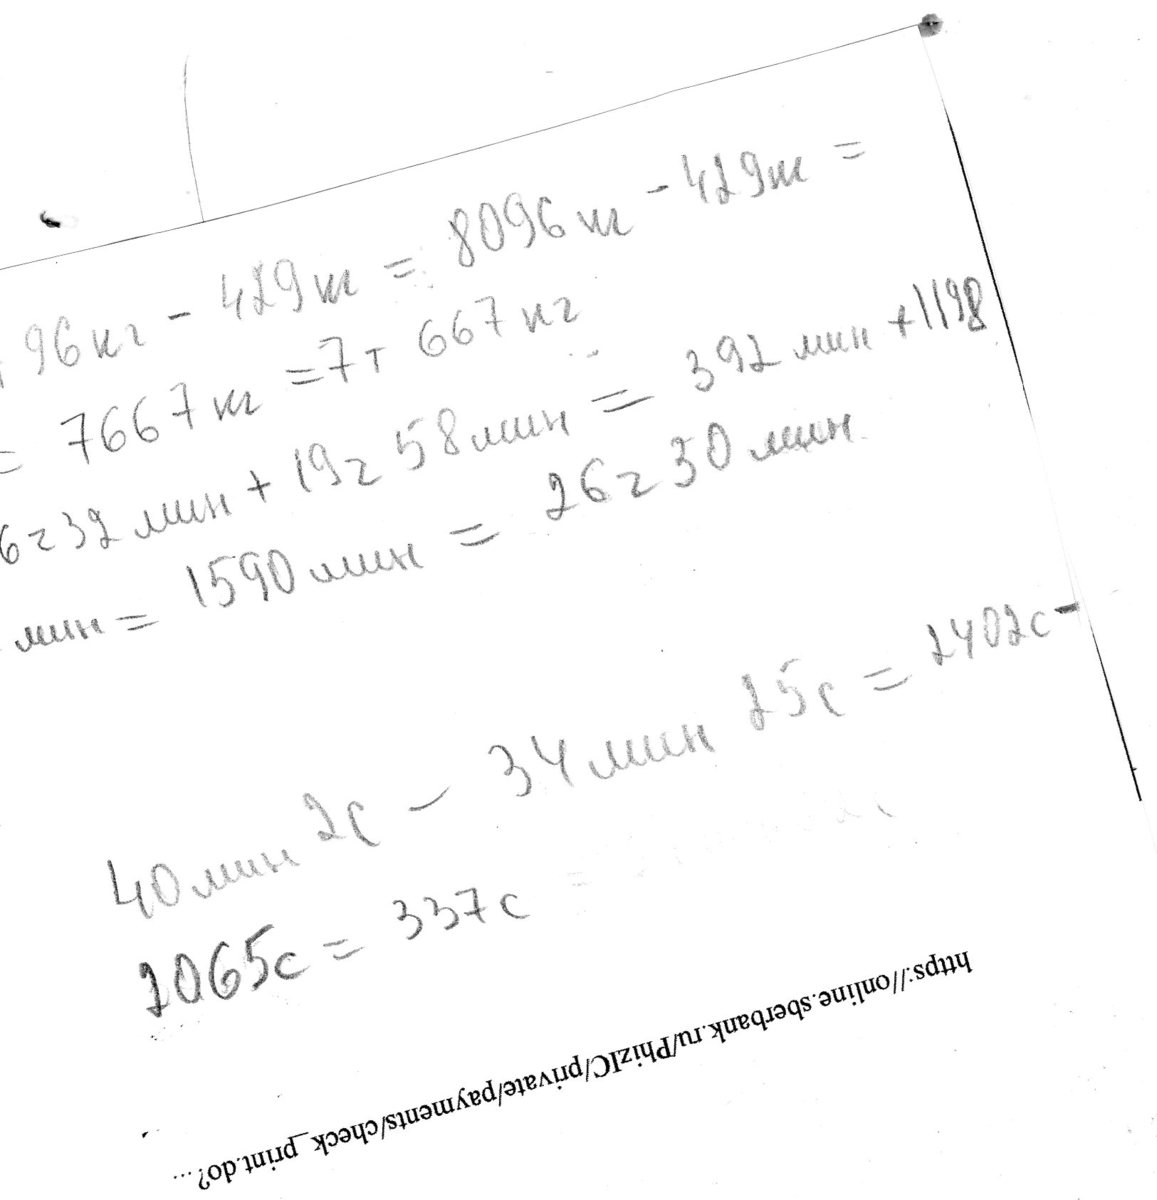 96кг - 429кг = 8096кг - 429кг =
= 7667кг = 7т 667кг
6ч32мин + 19ч 58мин = 392мин + 1198
мин = 1590мин = 26ч30мин
40мин 2с - 34мин 25с = 2402с -
2065с = 337с
https://online.sberbank.ru/PhizIC/private/payments/check_print.do?...